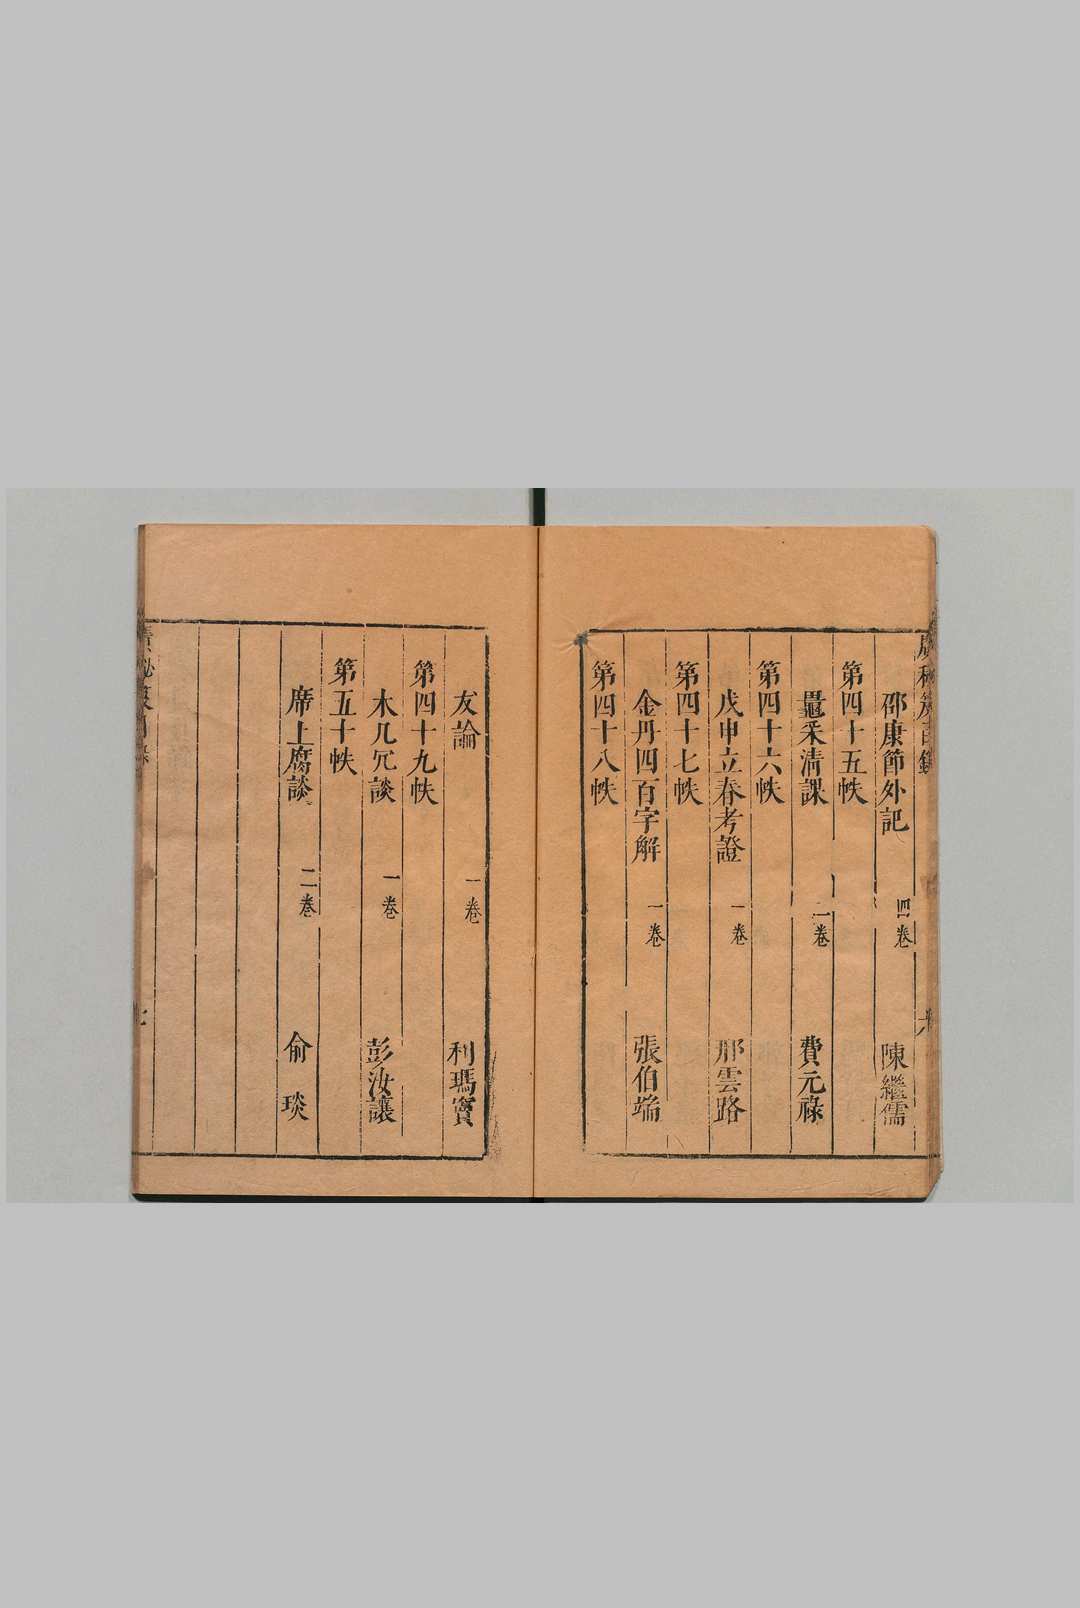 邵康節外記 四卷 陳繼儒
第四十五帙
鼂采清課 二卷 費元祿
第四十六帙
戊申立春考證 一卷 邢雲路
第四十七帙
金丹四百字解 一卷 張伯端
第四十八帙
友論 一卷 利瑪竇
第四十九帙
木几冗談 一卷 彭汝讓
第五十帙
席上腐談 二卷 俞琰